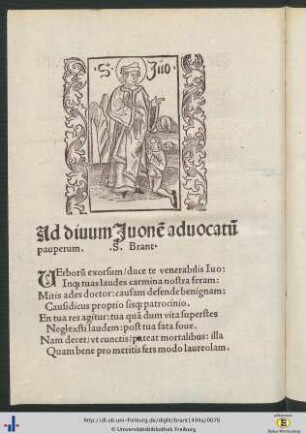 ·S· Iuo·
Ad diuum Iuonē aduocatū
pauperum. ·S. Brant·
UErborū exorsum/duce te venerabilis Iuo:
Inq; tuas laudes carmina nostra feram:
Mitis ades doctor: causam defende benignam:
Causidicus proprio sisq; patrocinio.
En tua res agitur: tua quā dum vita superstes
Neglexsti laudem: post tua fata foue.
Nam decet/vt cunctis/pateat mortalibus: illa
Quam bene pro meritis fers modo laureolam.
http://dl.ub.uni-freiburg.de/diglit/brant1494a/0076
© Universitätsbibliothek Freiburg